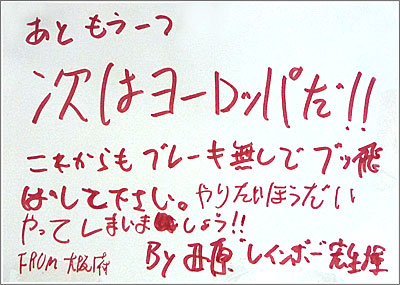 あと もう一つ
次はヨーロッパだ!!
これからも ブレーキ無しで ブッ飛
ばして下さい。やりたいほうだい
やってしまいましょう!!
FROM 大阪府 By 原"レインボー"